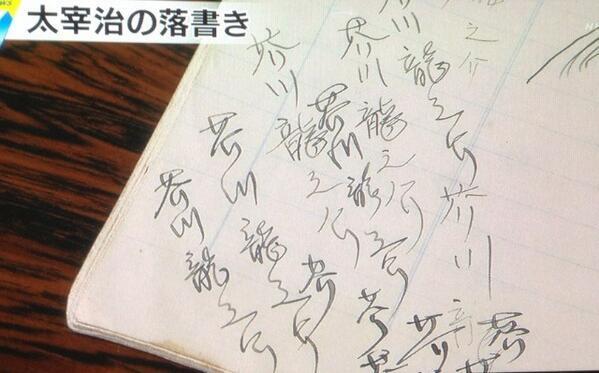 太宰治の落書き
之介
芥川龍
龍之介
芥川龍之介
芥川龍之介
芥川龍之介
芥川龍之介
芥川龍之介
芥
芥川
芥
芥